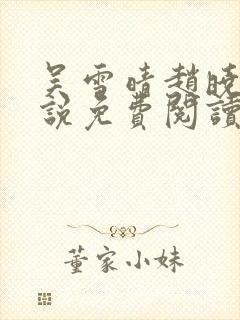 吴雪晴趙曉
說免費閱讀
董家小妹